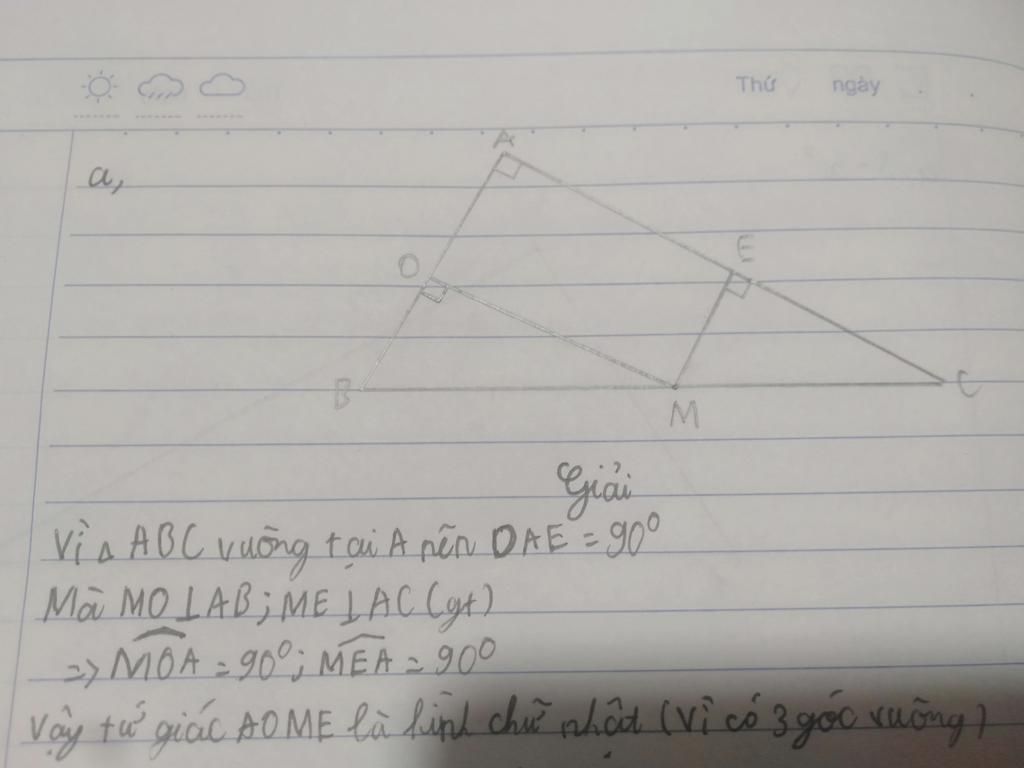 Thứ ngày
a,
A
O
E
B
M
C
Giải
Vì △ ABC vuông tại A nên OAE = 90⁰
Mà MO⊥AB; ME⊥AC (gt)
=> MOA = 90⁰; MEA = 90⁰
Vậy tứ giác AOME là hình chữ nhật (Vì có 3 góc vuông)